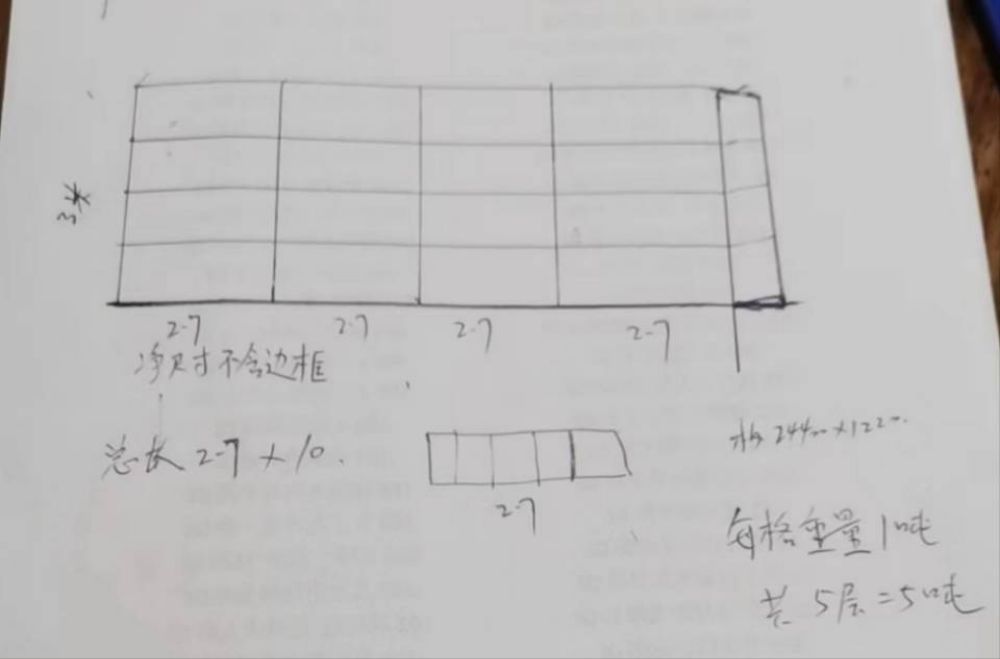 3米
2.7 2.7 2.7 2.7
净尺寸不含边框
总长 2.7×10.
2.7
每格重量1吨
共 5层=5吨